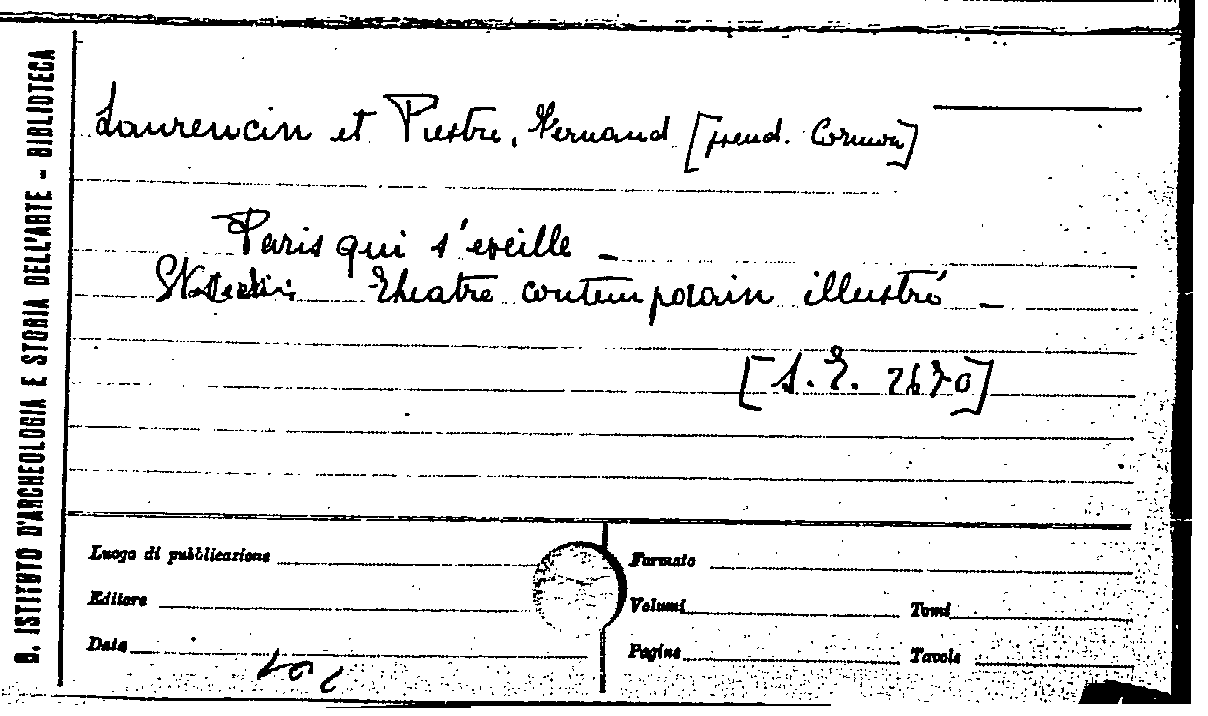 R. ISTITUTO D'ARCHEOLOGIA E STORIA DELL'ARTE - BIBLIOTECA
Laurencin et Piestre, Fernand [pseud. Cormon]
Paris qui s'eveille –
Théatre contemporain illustré –
[S. E. 2670]
Luogo di pubblicazione
Editore
Data
Formato
Volumi Tomi
Pagine Tavole